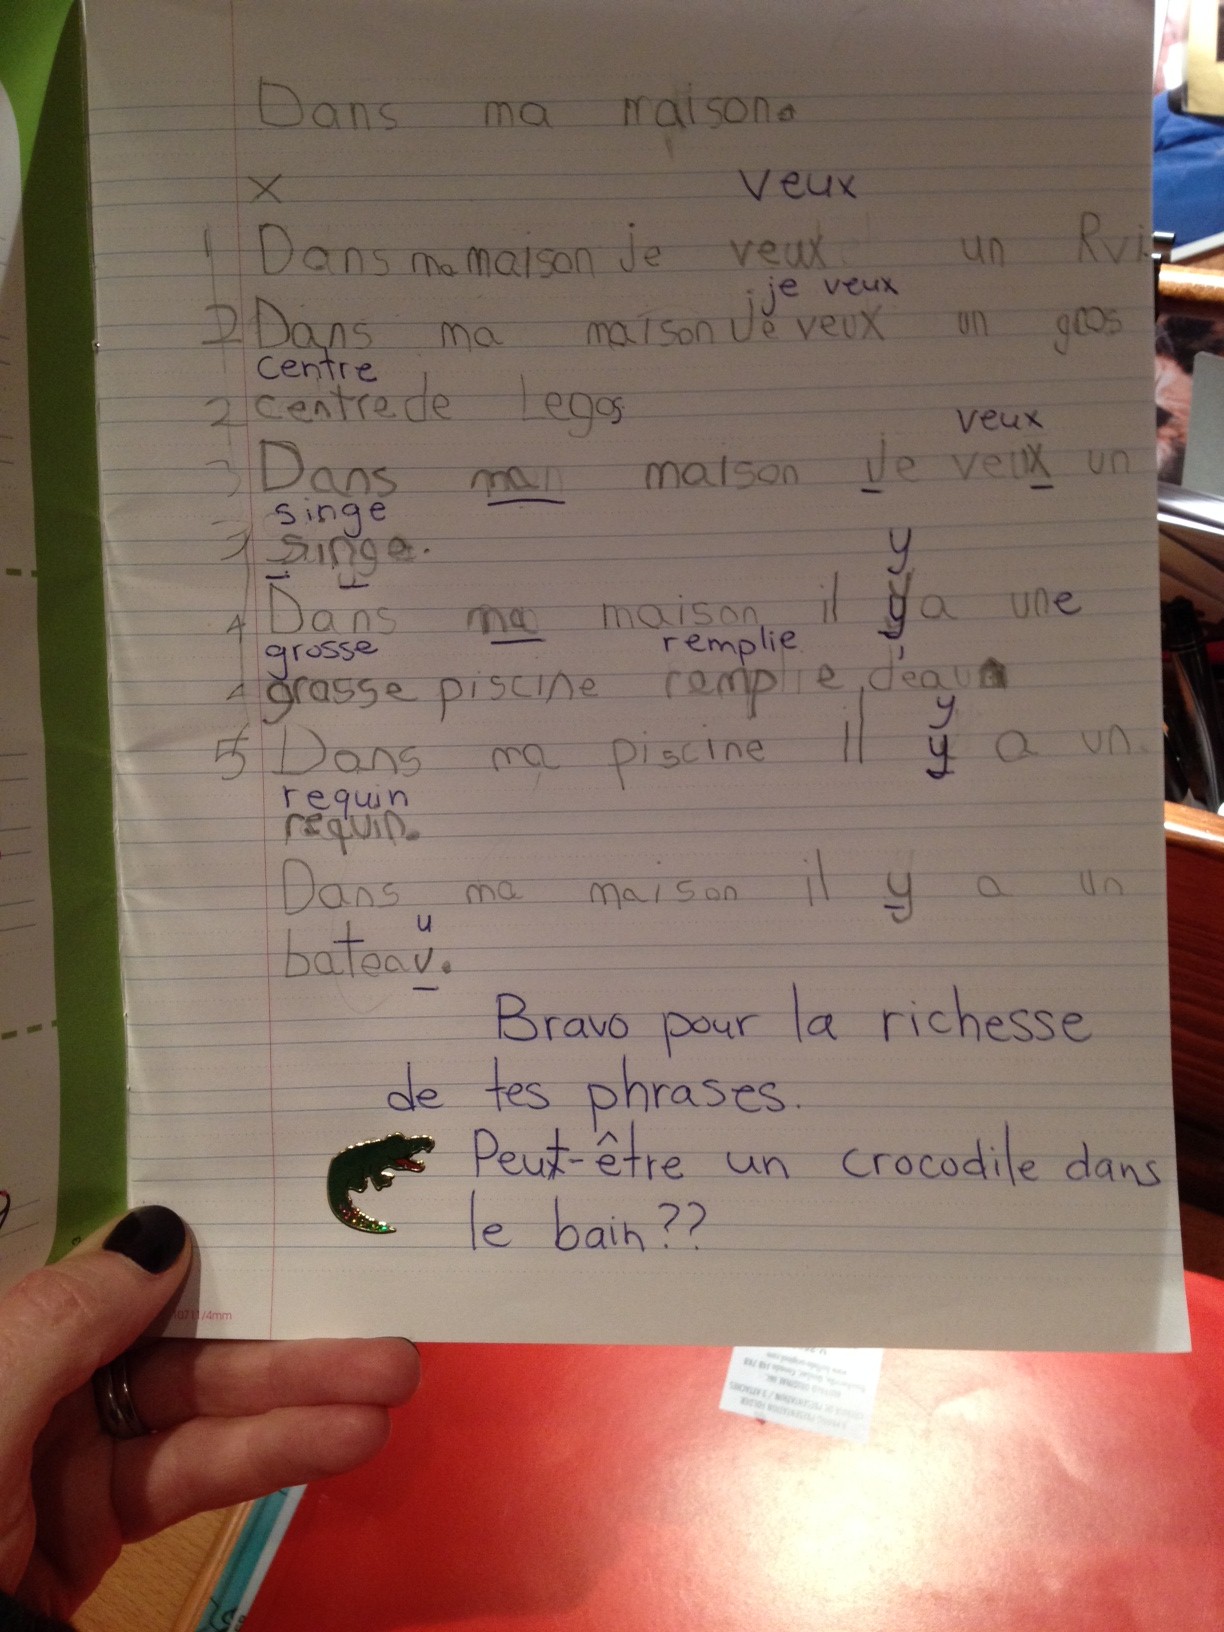 Dans ma maison.
x veux
1 Dans ma maison je veux un Rvi
je veux
2 Dans ma maison Je veux un gros
centre
2 centre de Legos
veux
3 Dans man maison Je veux un
singe
3 singe.
y
4 Dans ma maison il y a une
grosse remplie
4 grosse piscine remplie d'eau
y
5 Dans ma piscine il y a un
requin
requin.
Dans ma maison il y a un
u
bateau.
Bravo pour la richesse
de tes phrases.
Peut-être un crocodile dans
le bain??
0711/4mm